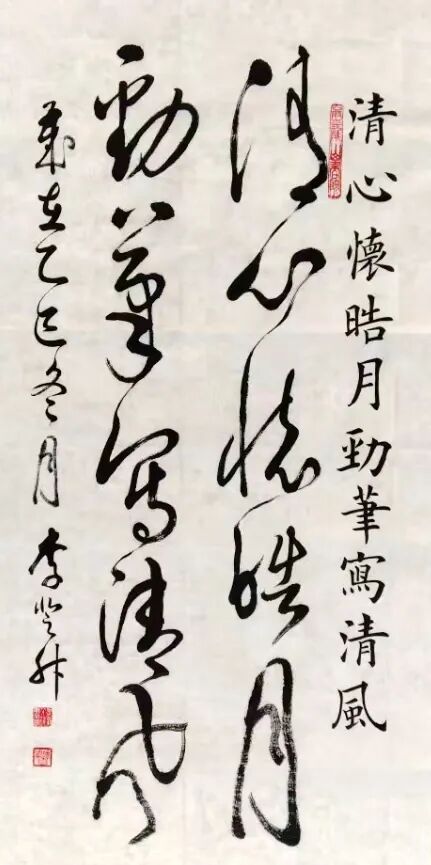 清心懷晧月勁筆寫清風
清心懷晧月
勁筆寫清風
歲在乙巳冬月 李